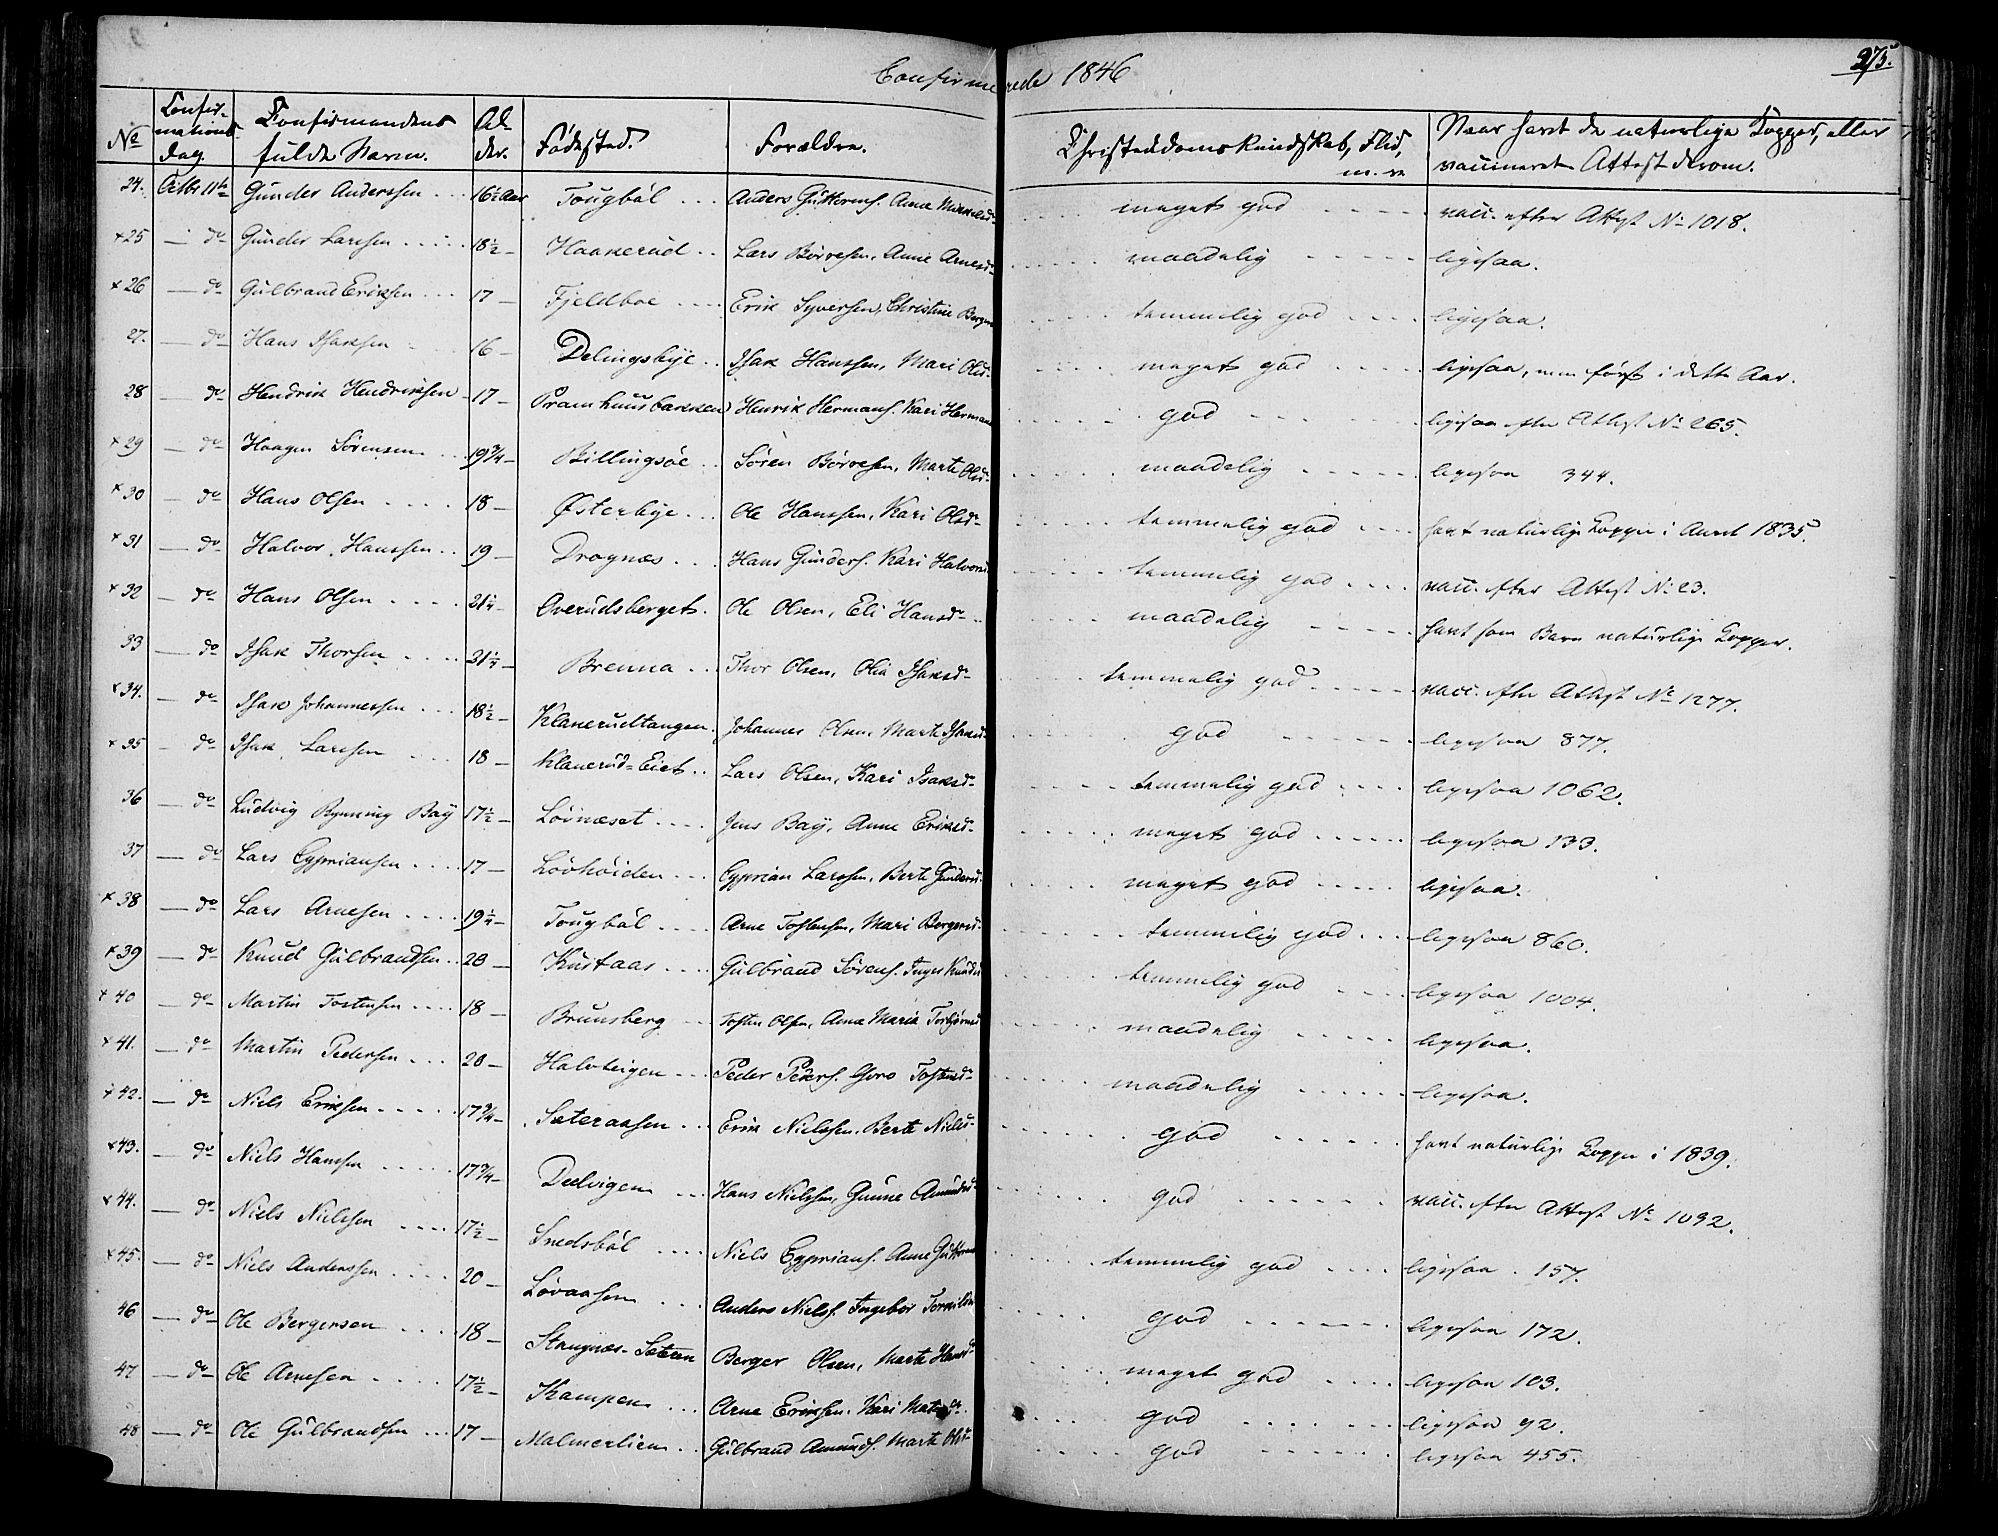 Confirmerede 1846
275.
No Confirmations dag. Confirmandens fulde Navn. Alder. Fødested. Forældre. Christendomskundskab, Flid, m. v. Naar havt de naturlige Kopper, eller vaccineret Attest derom.
24. Octbr 11te Gunder Andersen 16½ Aar Tougbøl Anders Guttorms. Anne meget god vacc. efter Attest No 1018.
×25 — do Gunder Larssen 18½ — Haakerud Lars Børresen, Anne Arnesd. maadelig ligesaa.
×26 — do Gulbrand Eriksen 17 — Fjeldboe Erik Syversen, Christine temmelig god ligesaa.
27. — do Hans Isaksen 16 — Delingsbye Isak Hanssen, Mari Olsd. meget god ligesaa, men først i dette Aar.
28 — do Hendrik Hendriksen 17 — Pramhuusbakken Henrik Hermans. Kari Herman god ligesaa efter Attest No 265.
×29 — do Haagen Sørensen 19¾ — Billingsøe Søren Børresen, Marte Olsd. maadelig ligesaa 344.
×30 — do Hans Olsen 18 — Østerbye Ole Hanssen, Kari Olsd. temmelig god havt naturlige Kopper i Aaret 1835.
×31 — do Halvor Hanssen 19 — Drognæs Hans Gunders. Kari Halvorsd. temmelig god vacc. efter Attest No 23.
×32 — do Hans Olsen 21¼ — Overudsberget Ole Olsen, Eli Hansd. maadelig havt som Barn naturlige Kopper.
33 — do Isak Thorsen 21¼ — Brenna Thor Olsen, Olia Isaksd. temmelig god vacc. efter Attest No 1277.
×34. — do Isak Johannessen 18½ — Klakerudtangen Johannes Olsen, Marte Isaksd. god ligesaa 877.
×35 — do Isak Larssen 18 — Klakerud-Eiet Lars Olsen, Kari Isaksd. temmelig god ligesaa 1062.
36 — do Ludvig Rynning Bay 17½ — Løvnæset Jens Bay, Anne Eriksd. meget god ligesaa 133.
37 — do Lars Cypriansen 17 — Løvhøiden Cyprian Larssen, Berte Gundersd. meget god ligesaa.
×38 — do Lars Arnesen 19¼ — Tougbøl Arne Tostensen, Mari Bergersd. temmelig god ligesaa 860.
×39 — do Knud Gulbrandsen 20 — Kustaas Gulbrand Sørens. Inger Knudsd. temmelig god ligesaa 1004.
×40 — do Martin Tostensen 18 — Brunsberg Tosten Olsen, Anne Maria Torbjørnsd. maadelig ligesaa.
×41. — do Martin Pedersen 20 — Halvteigen Peder Peders. Goro Tostensd. maadelig ligesaa.
×42. — do Niels Eriksen 17¾ — Sæteraasen Erik Nielssen, Berte Nielsd. god havt naturlige Kopper i 1839.
×43. — do Niels Hanssen 17¾ — Deelvigen Hans Nielssen, Gunne Amundsd. god vacc. efter Attest No 1092.
×44. — do Niels Nielssen 17½ — Snedsbøl Niels Cyprians. Anne Guttorms temmelig god ligesaa 157.
×45. — do Niels Anderssen 20 — Løvaasen Anders Niels. Ingebor god ligesaa 172.
46 — do Ole Bergersen 18 — Stangnæs-Sæteren Berger Olsen, Marte Hansd. meget god ligesaa 103.
47 — do Ole Arnesen 17½ — Kampen Arne Eriksen, Kari god ligesaa 92.
48 — do Ole Gulbrandsen 17 — Malmerlien Gulbrand Amunds. Marte Olsd. god ligesaa 455.